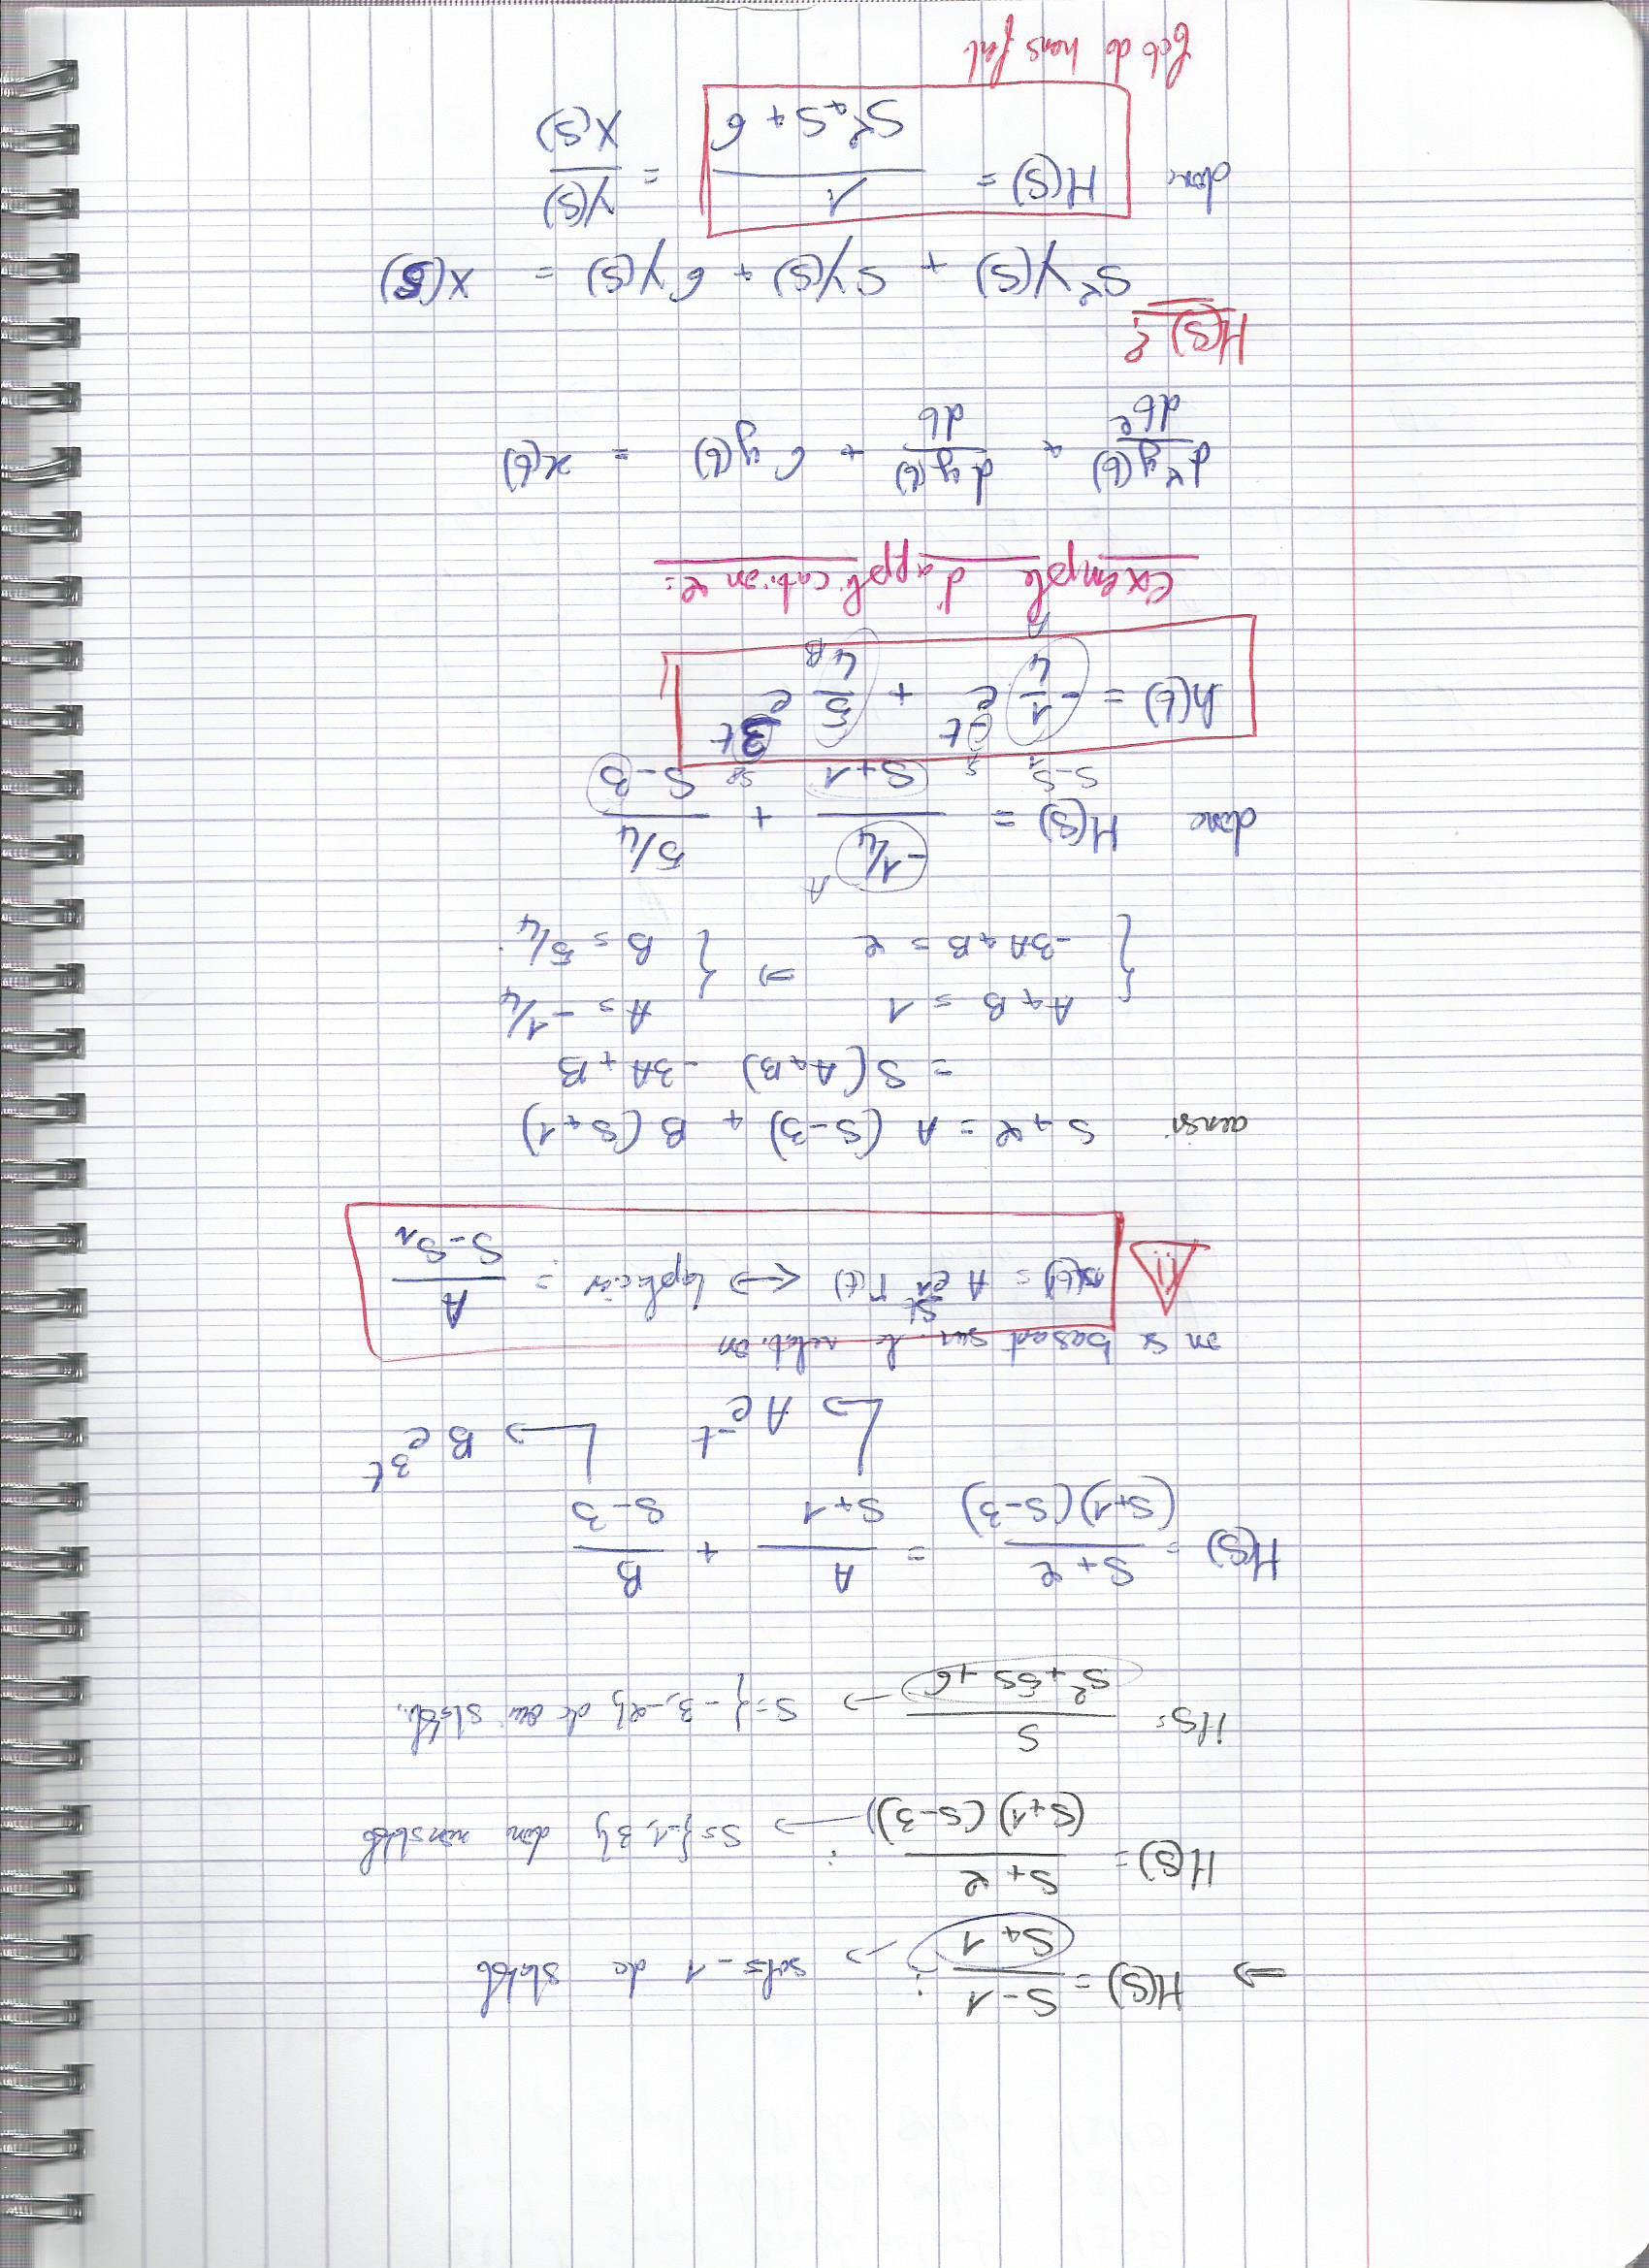 ⇒ H(S) = (S-1)/(S+1) : → sol s -1 dc stable
H(S) = (S+2)/((S+1)(S-3)) : → S={-1,3} donc non stable
HS = S/(S²+5S+6) → S={-3,-2} dc stable.
H(S) = (S+2)/((S+1)(S-3)) = A/(S+1) + B/(S-3)
↳ A e^{-t} ↳ B e^{3t}
en se basant sur la relation
!! (t) = A e^{S₁t} Γ(t) ↔ = A/(S-S₁)
ainsi S+2 = A (S-3) + B (S+1)
= S(A+B) -3A+B
{ A+B = 1 ⇒ { A = -1/4
{ -3A+B = 2 { B = 5/4
donc H(S) = (-1/4)/(S+1) + (5/4)/(S-3)
A
S-S₁
h(t) = -1/4 e^{-t} + 5/4 e^{3t}
A B
Exemple d'application 2:
d²y(t)/dt² + dy(t)/dt + 6y(t) = x(t)
H(S) ?
S²Y(S) + SY(S) + 6Y(S) = X(S)
donc H(S) = 1/(S²+S+6) = Y(S)/X(S)
fct de transfert